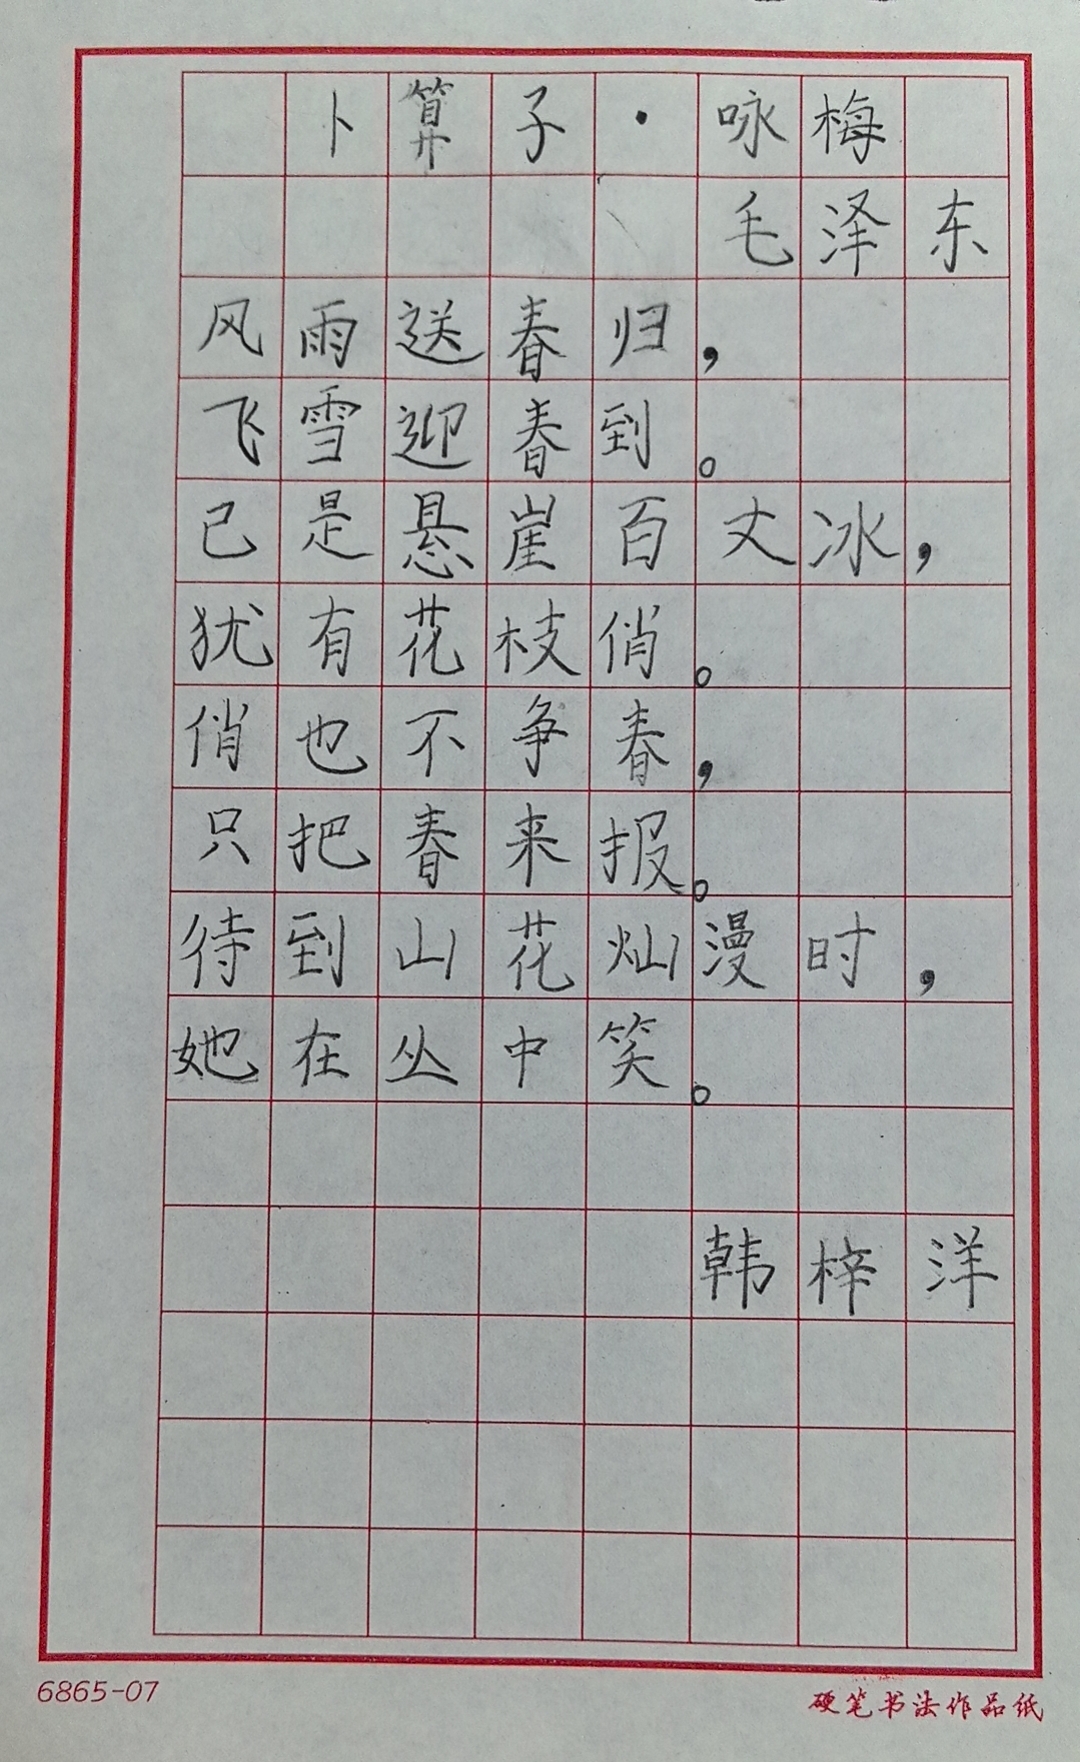 卜算子·咏梅
毛泽东
风雨送春归，
飞雪迎春到。
已是悬崖百丈冰，
犹有花枝俏。
俏也不争春，
只把春来报。
待到山花灿漫时，
她在丛中笑。
韩梓洋
6865-07
硬笔书法作品纸